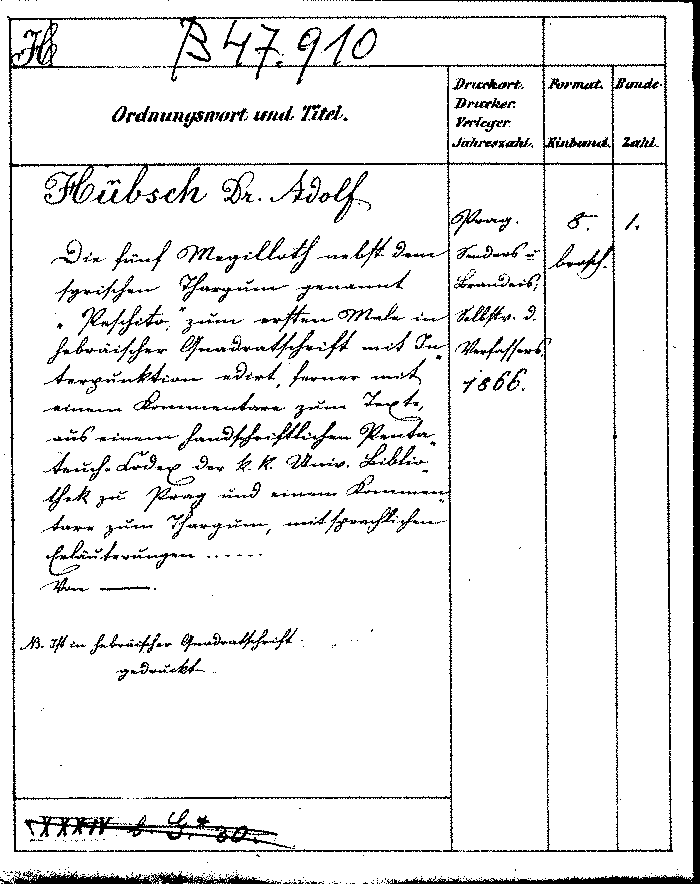 H
B 47.910
Ordnungswort und Titel.
Druckort.
Drucker.
Verleger.
Jahreszahl.
Format.
Einband.
Bände-
Zahl.
Hübsch Dr. Adolf
Die fünf Megilloth nebst dem
syrischen Thargum genannt
"Peschito," zum ersten Male in
hebräischer Quadratschrift mit In-
terpunktion edirt, ferner mit
einem Kommentare zum Texte,
aus einem handschriftlichen Penta-
teuch-Codex der k.k. Univ. Biblio-
thek zu Prag und einem Kommen-
tare zum Thargum, mit sprachlichen
Erläuterungen ......
Von ——.
NB. Ist in hebräischer Quadratschrift
gedruckt
Prag.
Senders u
Brandeis,
Selbstv. d.
Verfassers
1866.
8.
brosch.
1.
XXXIV b. G.* 30.